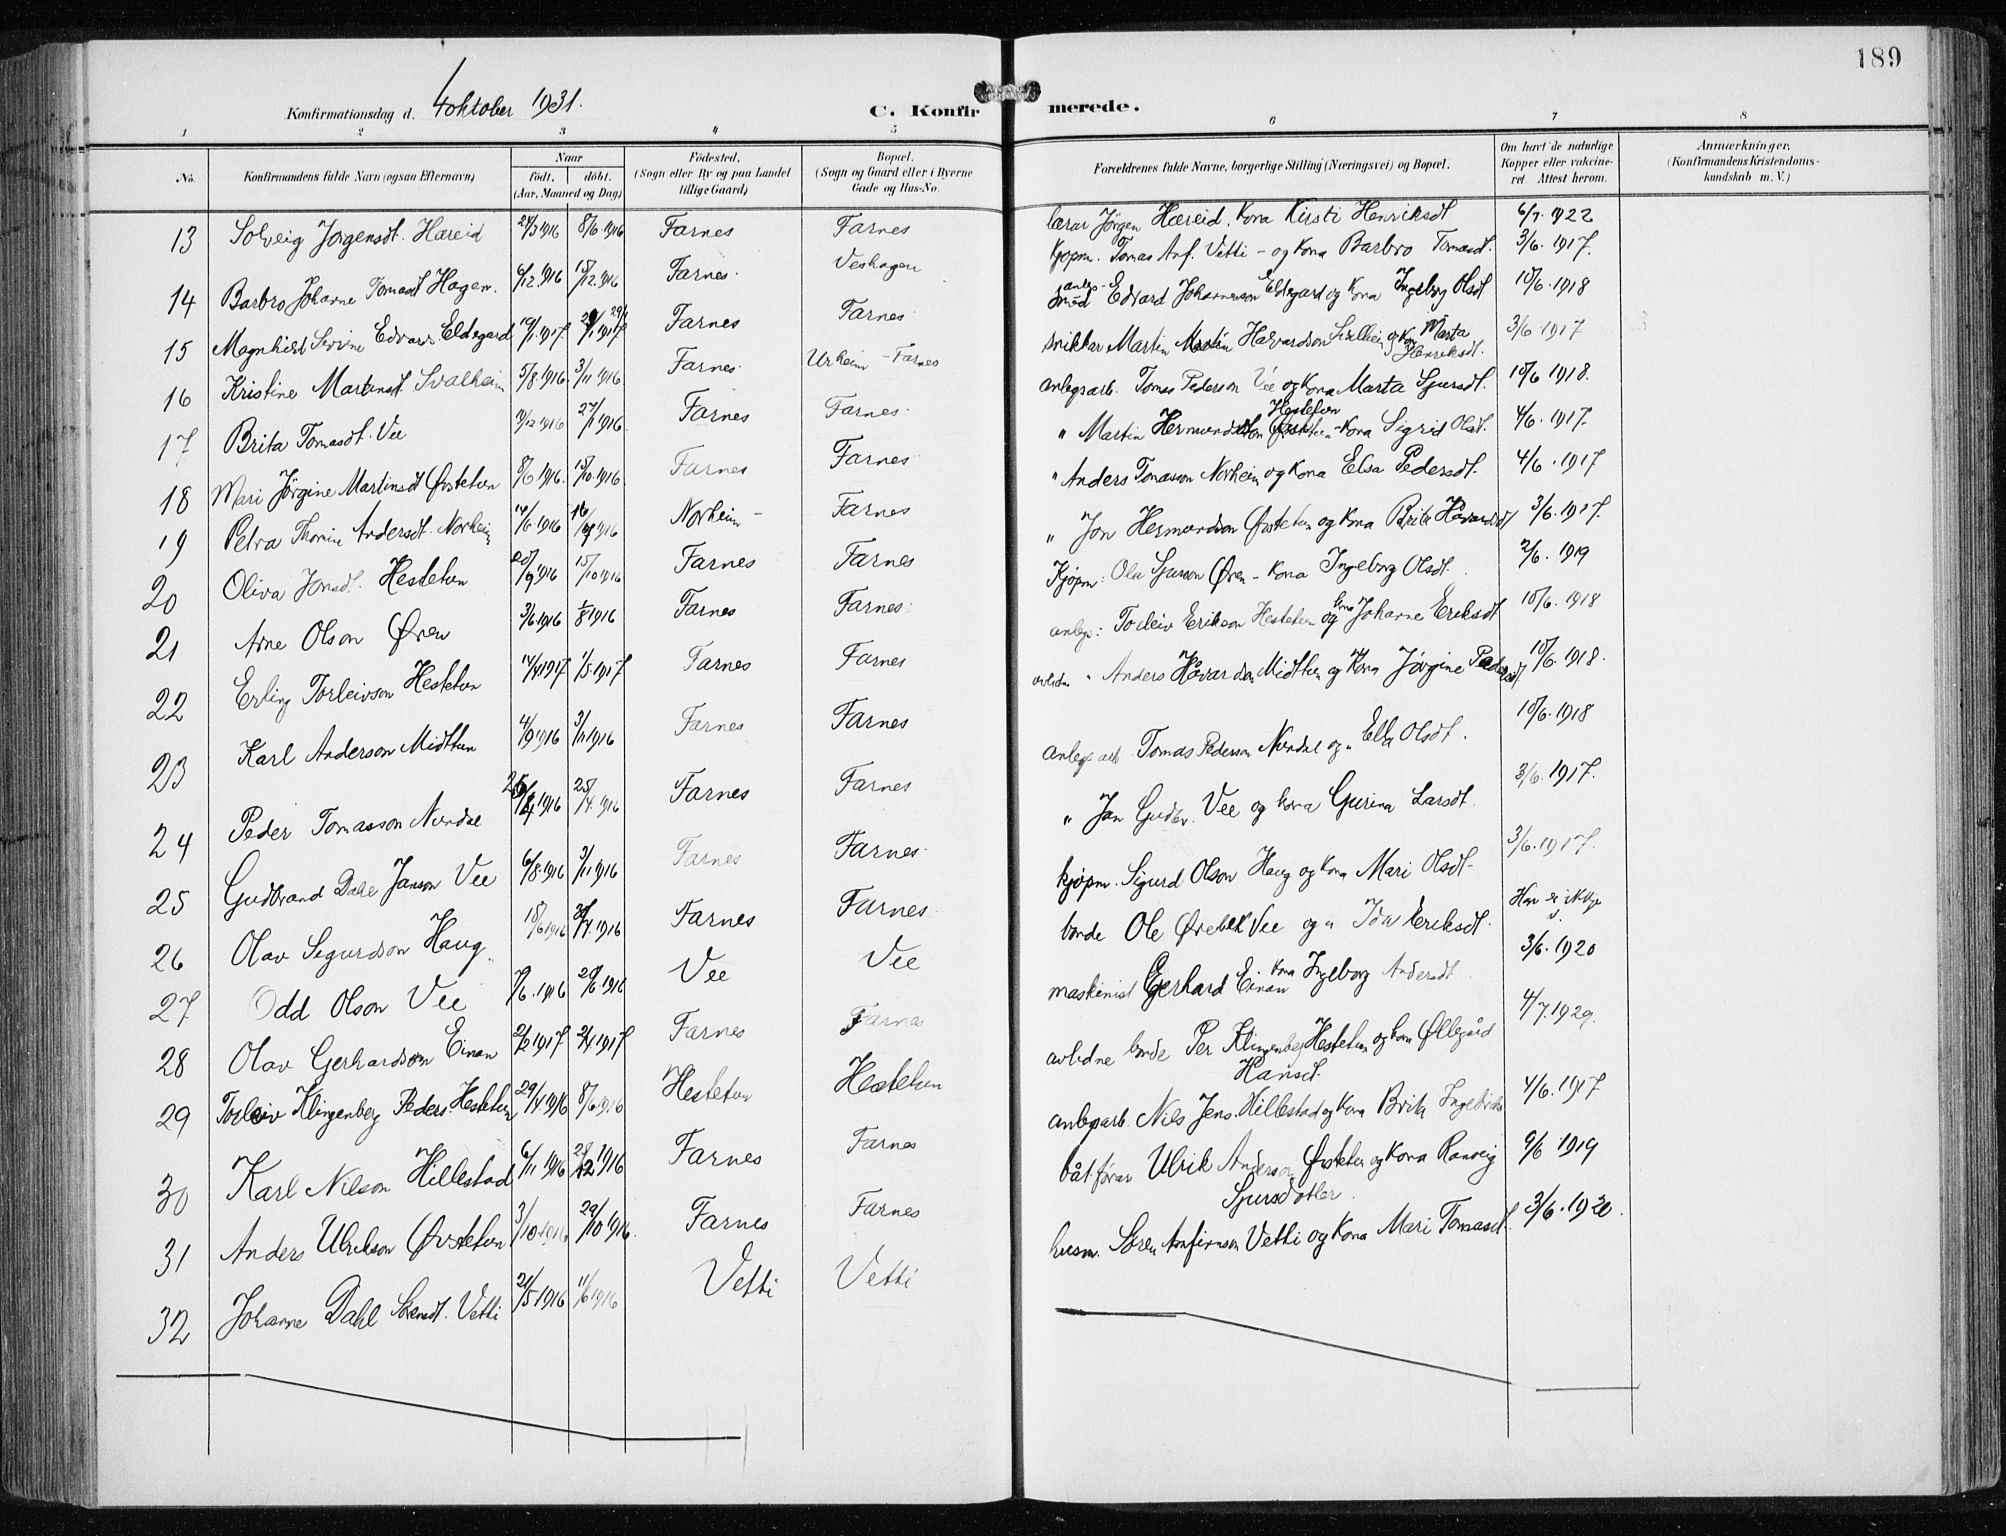 189
Konfirmationsdag d. 4 oktober 1931.
C. Konfirmerede.
1 2 3 4 5 6 7 8
No. Konfirmandens fulde Navn (ogsaa Efternavn) Naar født. døbt. (Aar, Maaned og Dag) Fødested. (Sogn eller By og paa Landet tillige Gaard) Bopæl. (Sogn og Gaard eller i Byerne Gade og Hus-No. Forældrenes fulde Navne, borgerlige Stilling (Næringsvei) og Bopæl. Om havt de naturlige Kopper eller vakcineret. Attest herom. Anmærkninger. (Konfirmandens Kristendomskundskab m. V.)
13 Solveig Jørgensdt. Hæreid 24/3 1916 8/6 1916 Farnes Farnes lærar Jørgen Hæreid. Kona Kirsti Henriksdt 6/7. 1922
14 Barbro Johanne Tomasdt Hagen. 6/12 1916 15/12 1916 Farnes Veshagen kjøpm. Tomas Anf. Vetti - og Kona Barbro Tomasdt. 3/6. 1917.
15 Magnhild Sevrine Edvards Eldegard 19/1. 1917. 29/1 1917 Farnes Farnes anlegs-smed Edvard Johannesson Eldegard og Kona Ingeborg Olsdt 10/6. 1918
16 Kristine Martinsdt Svalheim 5/8. 1916. 3/11 1916 Farnes Urheim - Farnes snikkar Martin Halvardson Svalheim og Kona Marta Henriksdt. 3/6 1917
17 Brita Tomasdt. Vee /12 1916 27/1 1916. Farnes Farnes anlegsarb. Tomas Pederson Vee og Kona Marta Sjursdt. 10/6 1918.
18 Mari Jørgine Martinsdt Øvstetun 8/6. 1916. 15/10. 1916. Farnes Farnes " Martin Hermundson Hestetun - Kona Sigrid Olsdt. 4/6. 1917.
19 Petra Thomine Andersdt. Norheim /6. 1916 16/7 1916 Norheim - Farnes " Anders Tomasson Norheim og Kona Elsa Pedersdt. 4/6. 1917
20 Oliva Jonsdt. Hestetun 20/9 1916 15/10 1916 Farnes Farnes " Jon Hermundson Øvstetun og Kona Brita Håvardsdt 3/6. 1917.
21 Arne Olson Øren 3/6 1916 1/8 1916 Farnes Farnes Kjøpm: Ola Sjurson Øren - Kona Ingeborg Olsdt. 2/6. 1919
22 Erling Torleivson Hestetun 14/4 1917 1/5. 1917 Farnes Farnes anlegs: Torleiv Erikson Hestetun og Kona Johanne Eriksdt 10/6. 1918
23 Karl Anderson Midttun 4/9 1916 3/11 1916 Farnes Farnes avlidne " Anders Håvardson Midttun og Kona Jørgine Pedersdt 10/6. 1918.
24 Peder Tomasson Nundal 25/4 1916 25/4. 1916 Farnes Farnes anlegs arb Tomas Pederson Nundal og " Ella Olsdt. 10/6. 1918
25 Gudbrand Dahl Janson Vee 6/8. 1916 3/11 1916 Farnes Farnes " Jan Gudbr. Vee og Kona Gurina Larsdt. 3/6. 1917.
26 Olav Sigurdson Haug 18/6 1916 /4. 1916 Farnes Farnes kjøpm. Sigurd Olson Haug og Kona Mari Olsdt - 3/6. 1917.
27 Odd Olson Vee /6. 1916 20/6. 1916 Vee Vee bonde Ole Ørebek Vee og " Ida Eriksdt. Han er ikkje v.
28 Olav Gerhardson Einan 2/2 1917 2/4 1917 Farnes Farnes maskinist Gerhard Einan Kona Ingeborg Andersdt. 3/6. 1920
29 Torleiv Klingenberg Peders Hestetun 29/4 1916 8/6 1916 Hestetun Hestetun avlidne bonde Per Klingenberg Hestetun og kona Øllegård Hansdt. 4/7. 1929.
30 Karl Nilson Hillestad 6/11 1916 28/12 1916 Farnes Farnes anlegsarb. Nils Jens. Hillestad og Kona Brita Ingebriktsd 4/6. 1917
31 Anders Ulrikson Øvstetun 3/10. 1916 29/10 1916. Farnes Farnes båtførar Ulrik Anderson Øvstetun og Kona Ranveig Sjursdotter. 9/6 1919
32 Johanne Dahl Sørensdt. Vetti 21/5 1916 11/6 1916 Vetti Vetti husm. Søren Anfinnson Vetti og Kona Mari Tomasdt. 3/6. 1920.